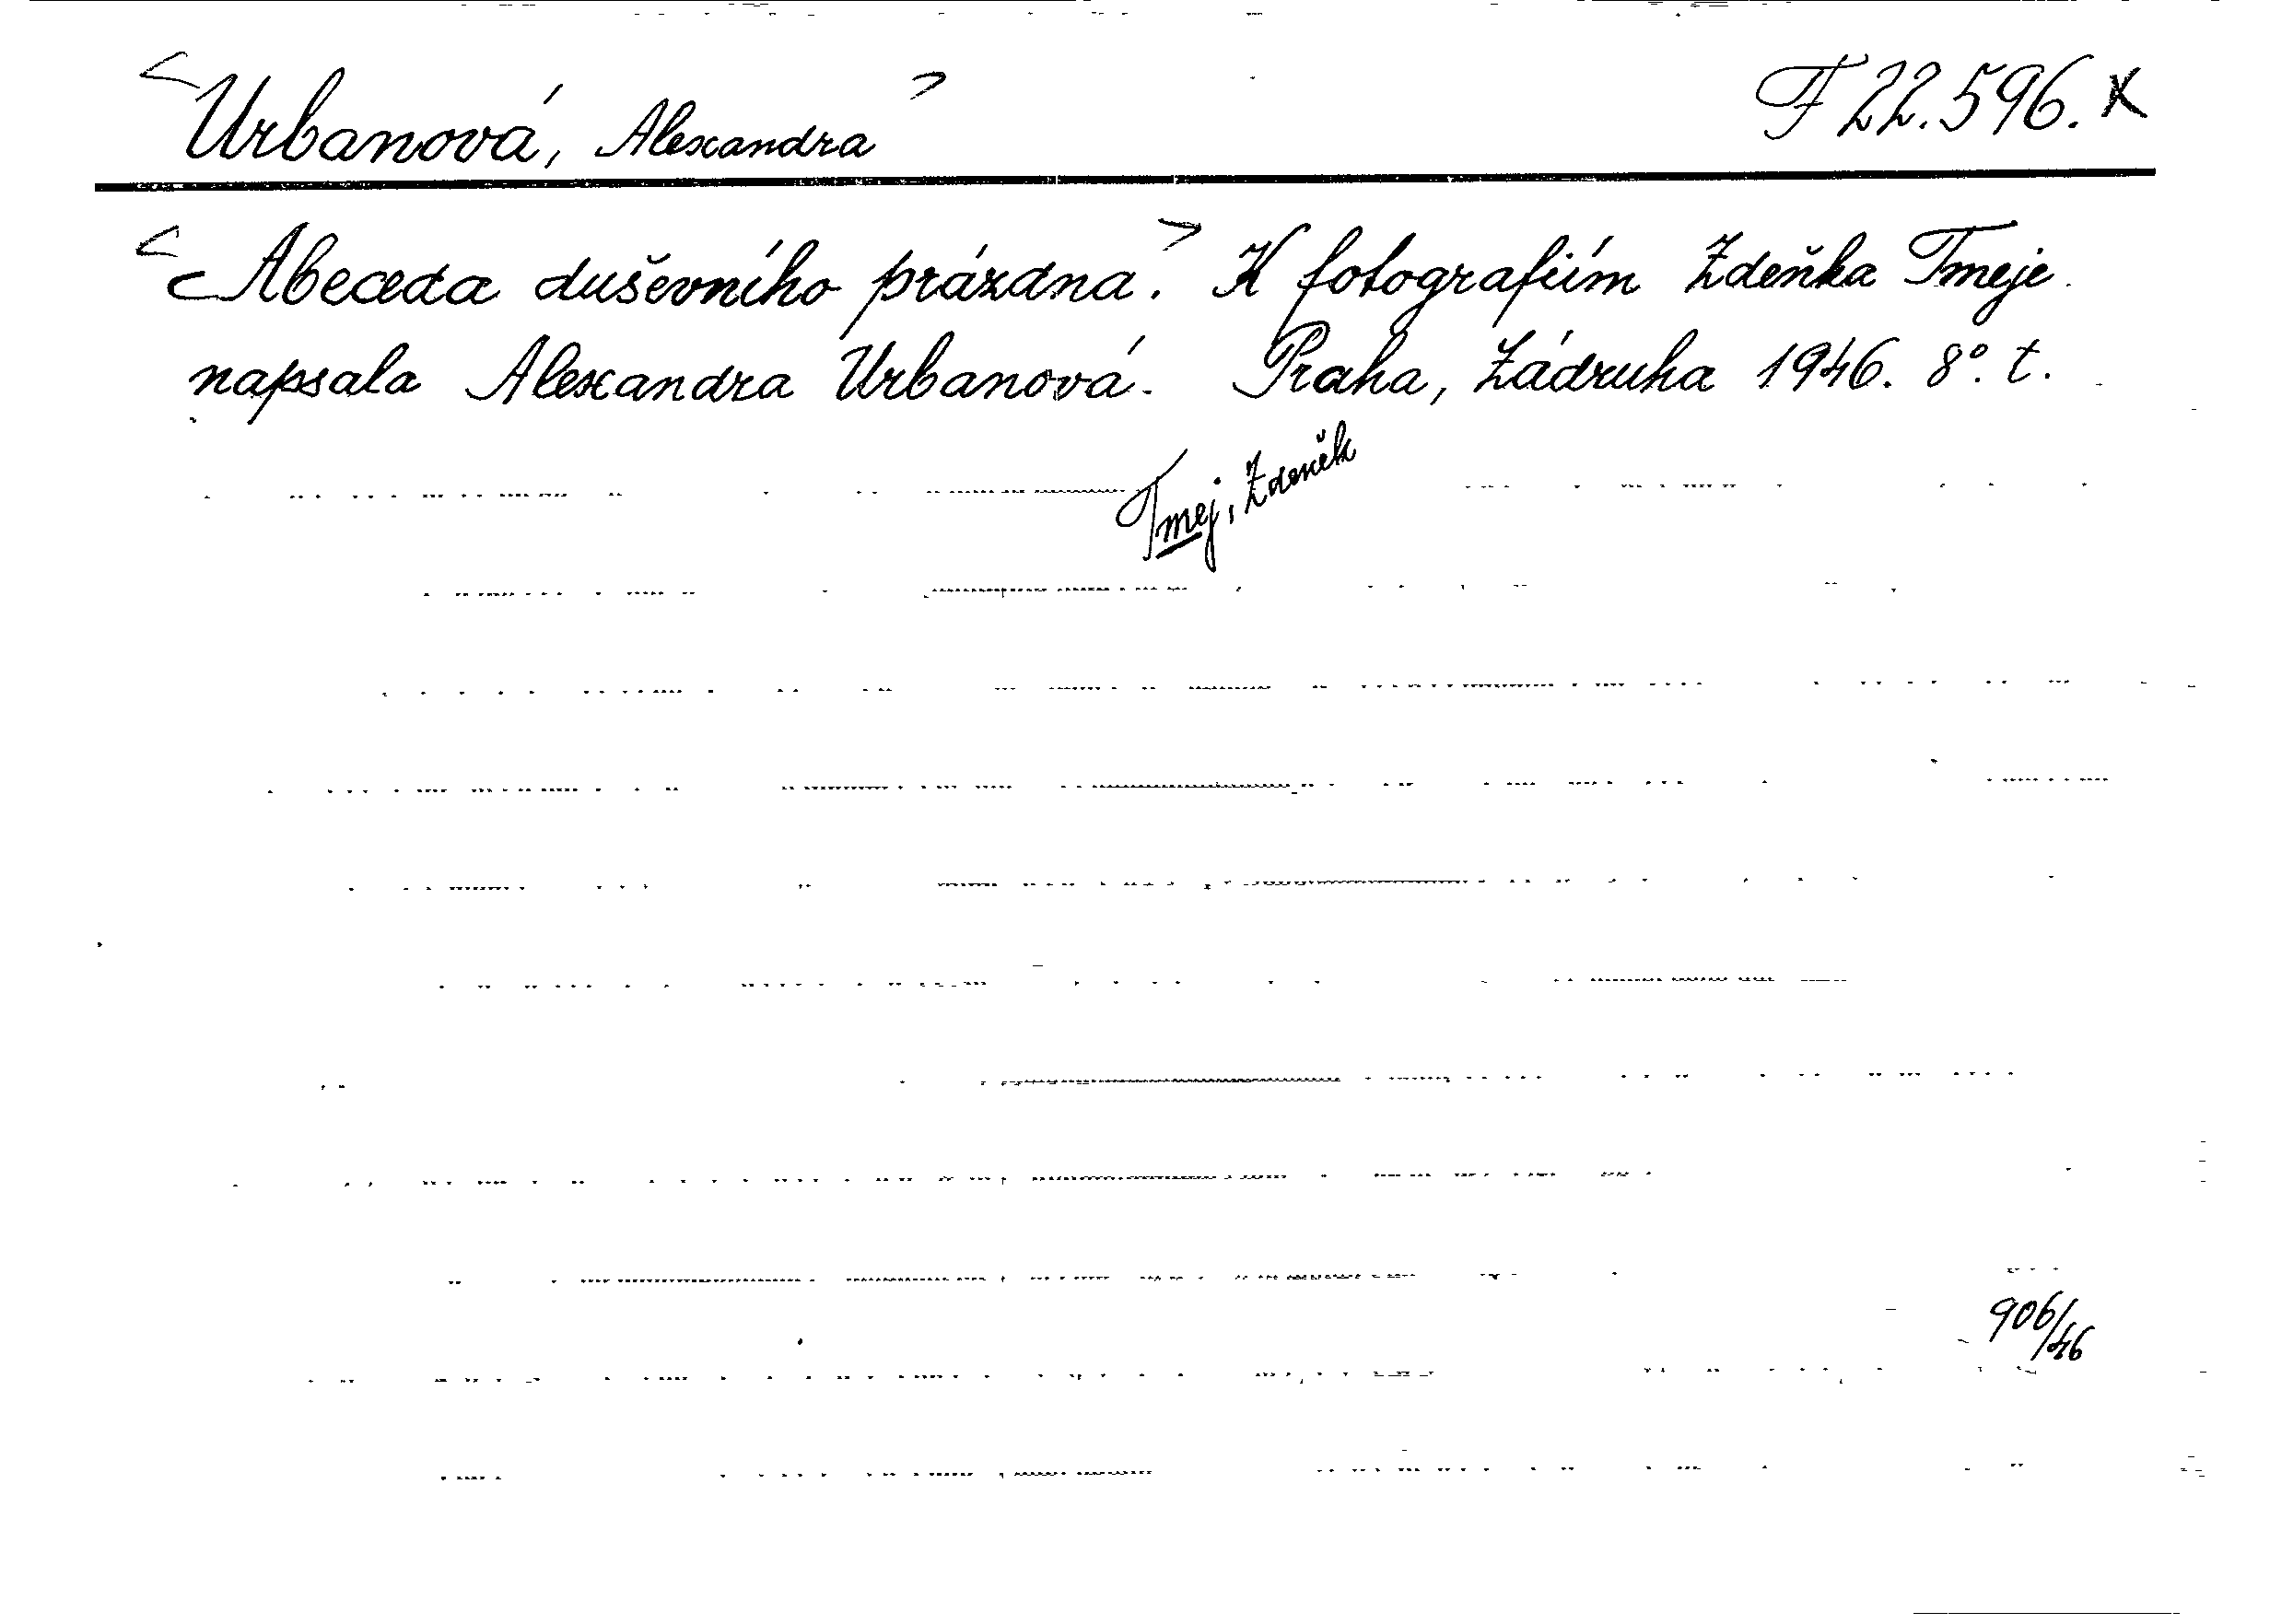 <Urbanová, Alexandra> F 22.596. x
<Abeceda duševního prázdna.> K fotografiím Zdeňka Tmeje
napsala Alexandra Urbanová. Praha, Zádruha 1946. 8°. t.
Tmej, Zdeněk
906/46